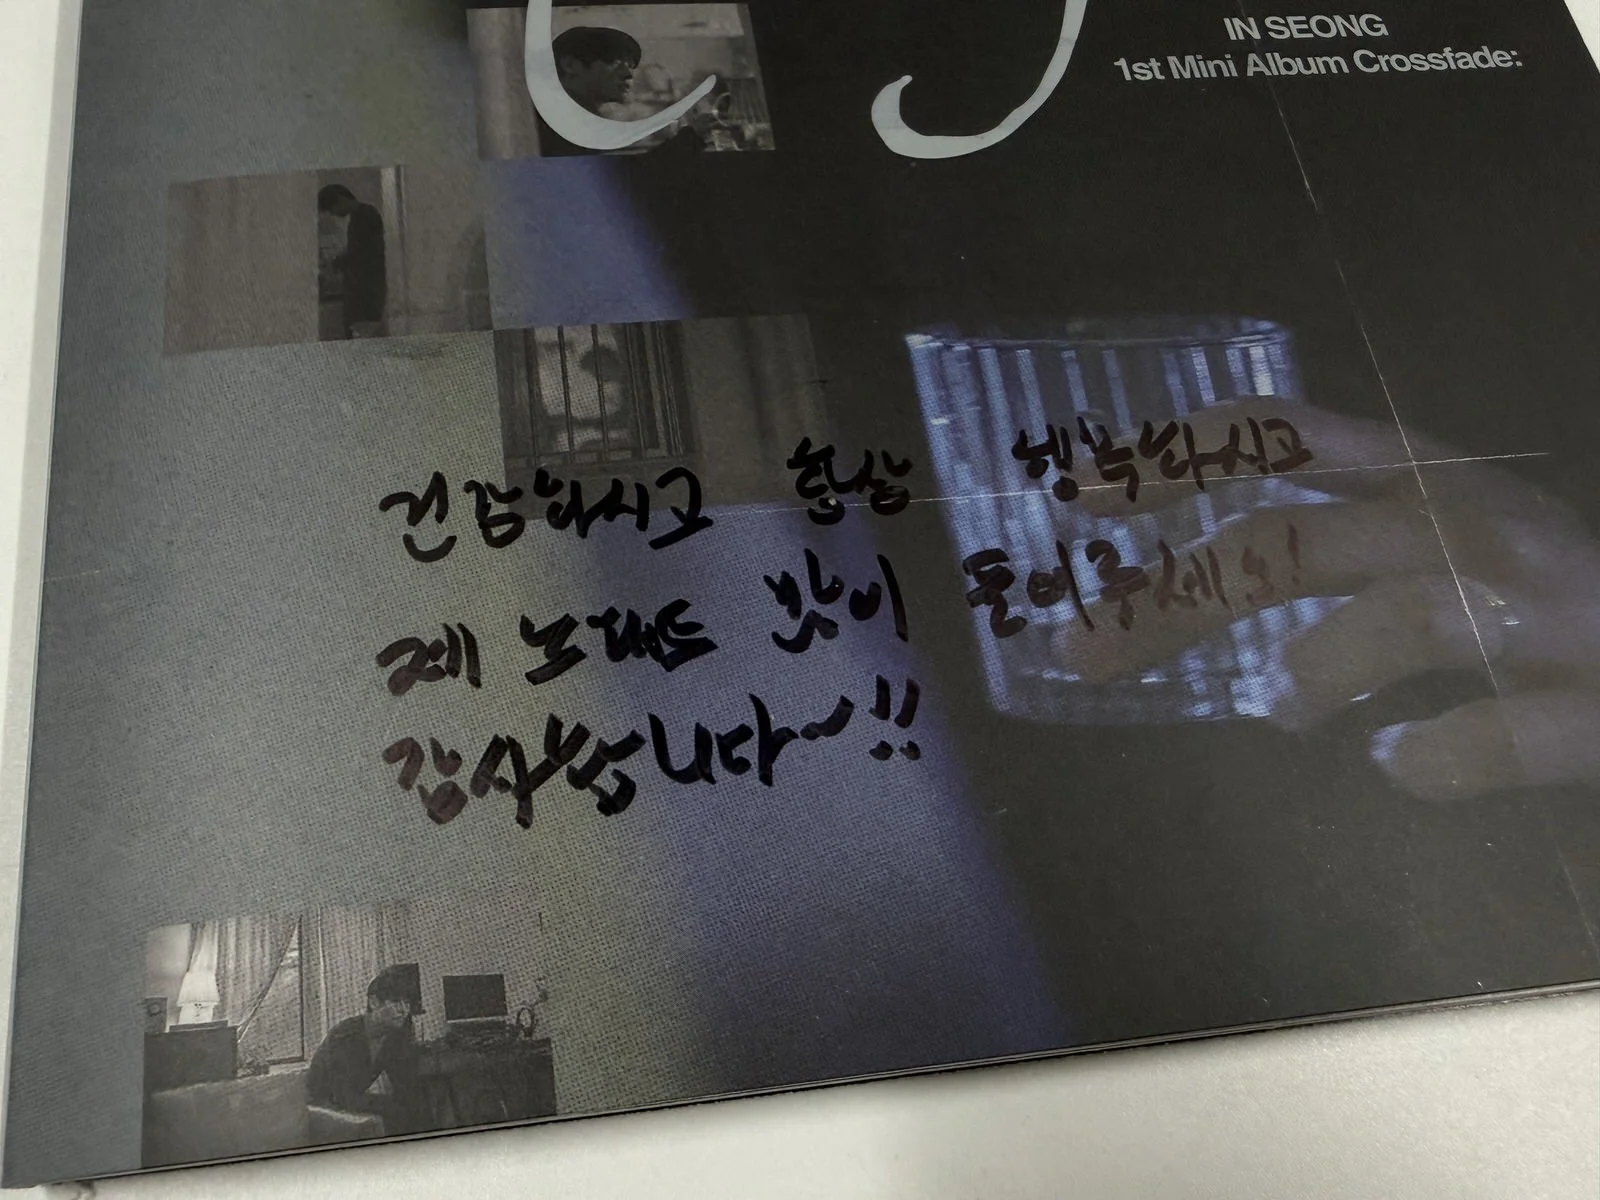 IN SEONG
1st Mini Album Crossfade:
건강하시고 항상 행복하시고
제 노래도 많이 들어주세요!
감사합니다~!!